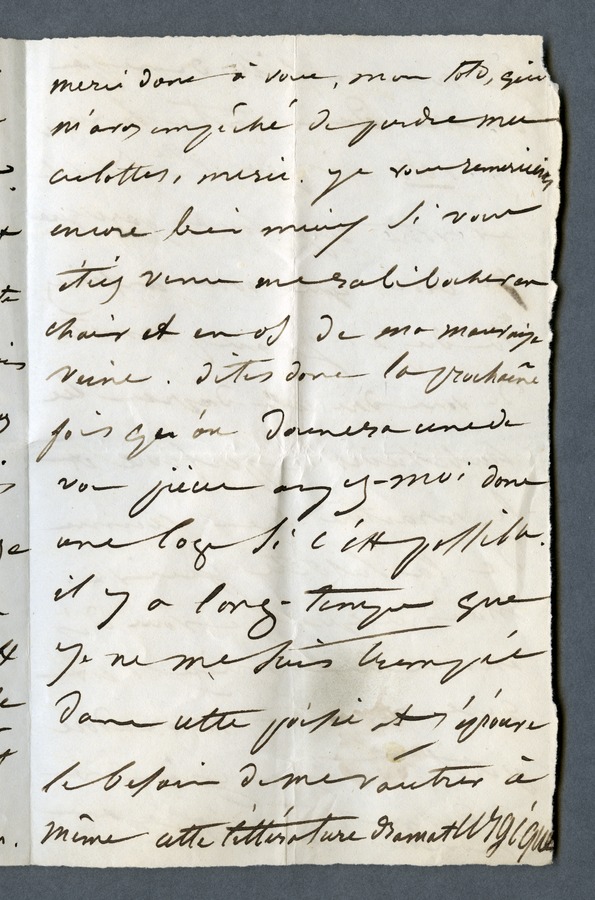 merci donc à vous, mon toto, qui
m'avez empêché de perdre mes
culottes, merci. Je vous remercierais
encore bien mieux si vous
étiez venu me rabibocher en
chair et en os de ma mauvaise
veine. dites donc la prochaine
fois qu'on donnera une de
vos pièces ayez-moi donc
une loge si c'est possible.
il y a long-temps que
je ne me suis trempée
dans cette poésie et j'éprouve
le besoin de me vautrer à
même cette littérature dramaturgique